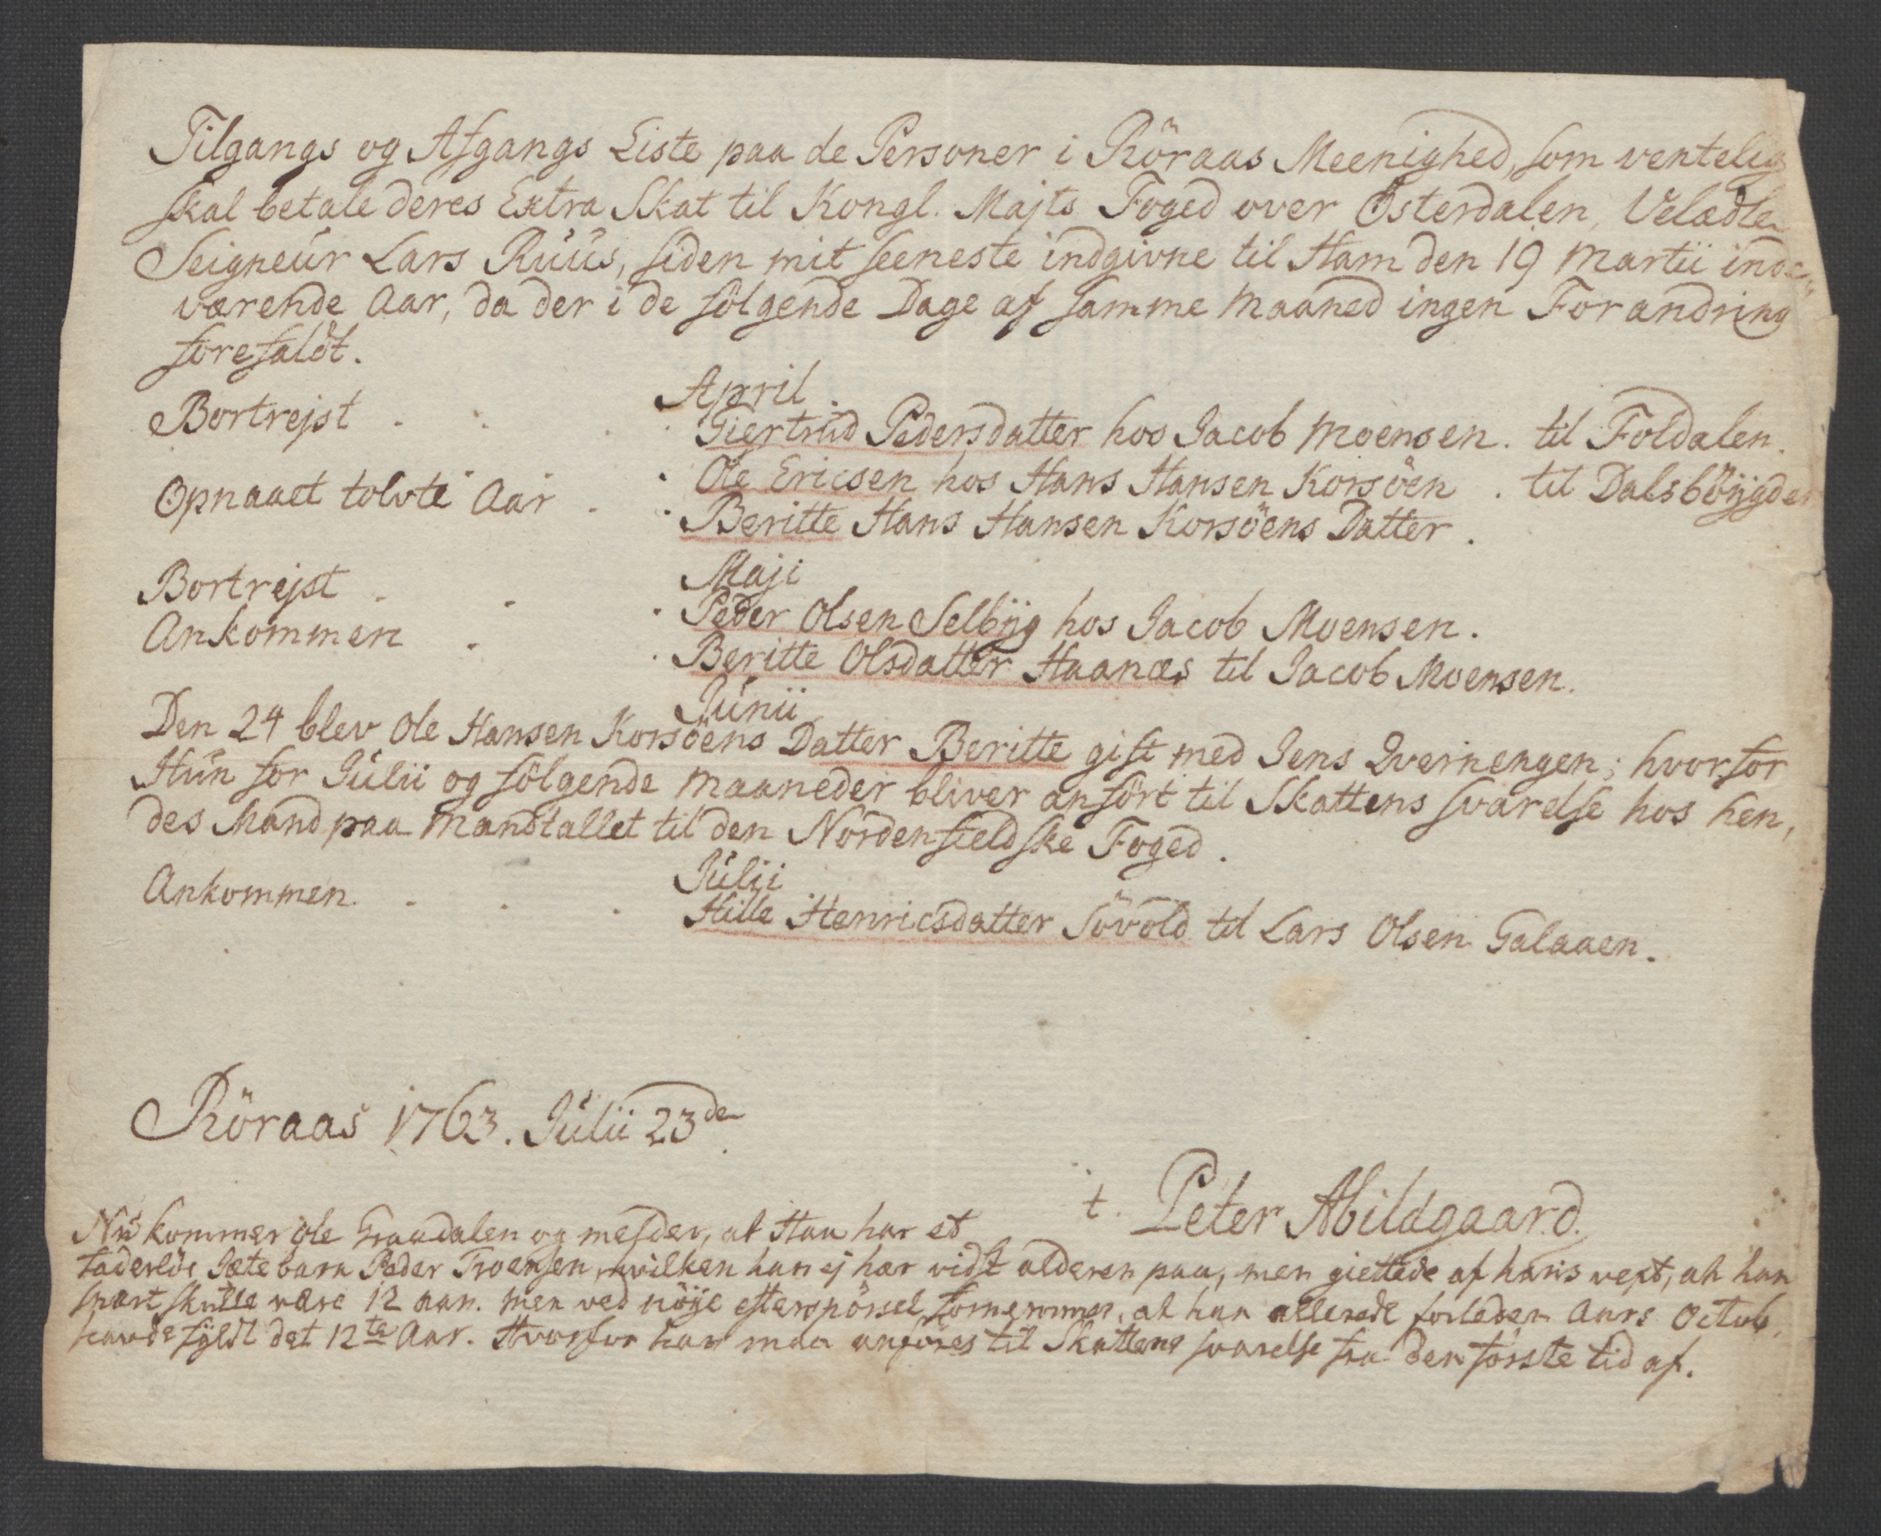 Tilgangs og Afgangs Liste paa de Personer i Röraas Meenighed, som ventelig
skal betale deres Extra Skat til Kongl. Majts Foged over Österdalen, Velædle
Seigneur Lars Ruus, siden mit seeneste indgivne til Ham den 19 Martii inde
værende Aar, da der i de fölgende Dage af samme Maaned ingen Forandring
forefaldt.
April.
Bortrejst . . . . Giertrud Pedersdatter hos Jacob Moensen. til Foldalen.
. Ole Ericsen hos Hans Hansen Korsöen . til Dalsböygden
Opnaaet tolvte Aar . . Beritte Hans Hansen Korsöens Datter.
Maji
Bortrejst . . . Peder Olsen Selbyg hos Jacob Moensen.
Ankommen . . Beritte Olsdatter Haanæs til Jacob Moensen.
Junii
Den 24 blev Ole Hansen Korsöens Datter Beritte gift med Jens Qvernengen; hvorfor
Hun for Julii og fölgende Maaneder bliver anfört til Skattens svarelse hos hen,
des Mand paa Mandtallet til den Nordenfieldske Foged.
Julii
Ankommen . . . Hille Henricsdatter Sövold til Lars Olsen Galaaen.
Röraas 1763. Julii 23de
t. Peter Abildgaard.
Nu kommer Ole Graadalen og melder, at Han har et
faderlös Sætebarn Peder Troensen, hvilken han ej har vidst alderen paa, men giettede af hans vext, at han
snart skulle være 12 aar. Men ved nöye efterspörsel fornemmer, at han allerede forleden Aars Octob.
havde fyldt det 12te Aar. Hvorfor han maa anföres til Skattens svarelse fra den förste tid af.